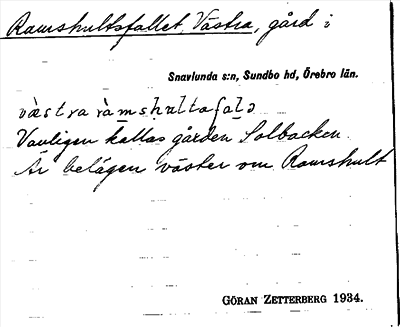 Ramshultsfallet, Västra, gård i
Snavlunda s:n, Sundbo hd, Örebro län.
Vanligen kallas gården Solbacken.
Är belägen väster om Ramshult
GÖRAN ZETTERBERG 1934.